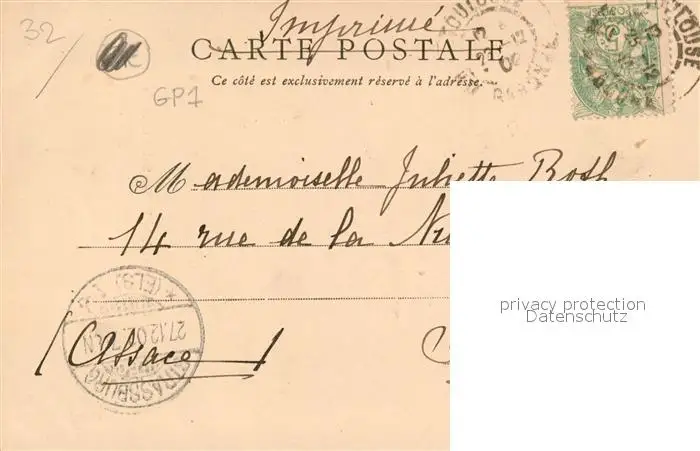 32
Imprimé
CARTE POSTALE
Ce côté est exclusivement réservé à l'adresse.
GP1
TOULOUSE
TOULOUSE
Mademoiselle Juliette Roth
14 rue de la
privacy protection
Datenschutz
(ELS)
27.12.0
STRASSBURG
(Alsace)